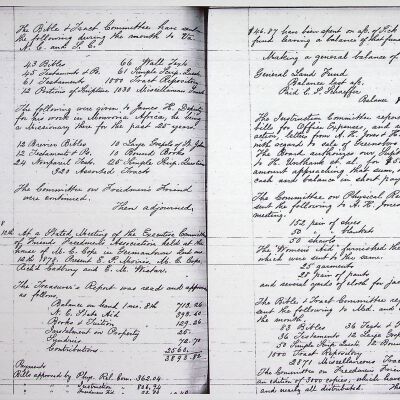 The Bible & Tract Committee have sent
the following during the month to Va.
N. C. and S. C.
43 Bibles 66 Wall Texts
45 Testaments & Ps. 61 Simple Scrip.
61 Testaments 1000 Tract Repository
12 Portions of Scripture 1030 Miscellaneous
The following were given to James H. Deputy
for his work in Monrovia Africa, he being
a Missionary there for the past 25 years.
12 Brevier Bibles 10 Large Gospels of St. John
12 Testaments & Ps. 10 Bound Books
24 Nonpareil Tests. 25 Simple Scrip.
320 Assorted Tracts
The Committee on Freedmen's Friend
were continued.
Then adjourned.
12th At a Stated Meeting of the Executive Committee
of Friends Freedmen's Association held at the
house of M. C. Cope in Germantown 2nd mo
12th 1878. Present E. S. M. C. Cope
and E. M. Wistar.
The Treasurer's Report was read and approved
as follows.
Balance on hand 1 mo. 8th 713.26
N. C. State Aid 398.40
Books & Tuition 129.26
Instalment on Property 25.
Sundries 72.70
Contributions 2560.
Payments
Bills approved by Phys. Rel. Com. 362.04
" " Instruction "
$46.87 has been spent on
fund leaving a balance of this fund
Making a general balance of
General Land Fund
Balance last
Paid C. S. Schaffer
Balance
The Instruction Committee report
bills for Office Expenses, and
action, letters from A. H. Jones
with regard to sale of Greensboro
The Board authorizes our
to H. Unthank et al. for $5
amount approaching that sum,
cash and balance in short pay
The Committee on Physical
sent the following to A. H. Jones
meeting.
152 pair of shoes
50 " " blankets
50 shawls
The Women's Aid furnished the
which were sent to the same.
25 garments
25 pair of pants
and several yards of cloth for
The Bible & Tract Committee
the following to Md. and
the month.
83 Bibles 36 Tests &
36 Testaments 12
50 Simple Scrip. 12 Bound
1000 Tract Repository
2871 Miscellaneous Tracts
The Committee on Freedmen's Friend
an edition of 3000 copies, which have
and nearly all distributed. The